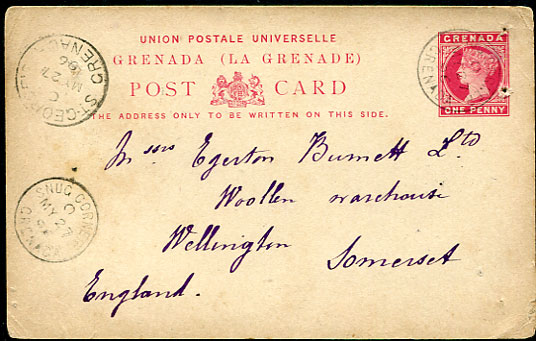 UNION POSTALE UNIVERSELLE
GRENADA (LA GRENADE)
POST CARD
THE ADDRESS ONLY TO BE WRITTEN ON THIS SIDE.
GRENADA
ONE PENNY
ST. GEORGE'S GRENADA
C
MY 27
96
SNUG CORNER
C
MY 27
Messrs Egerton Burnett Ltd
Woollen warehouse
Wellington Somerset
England.